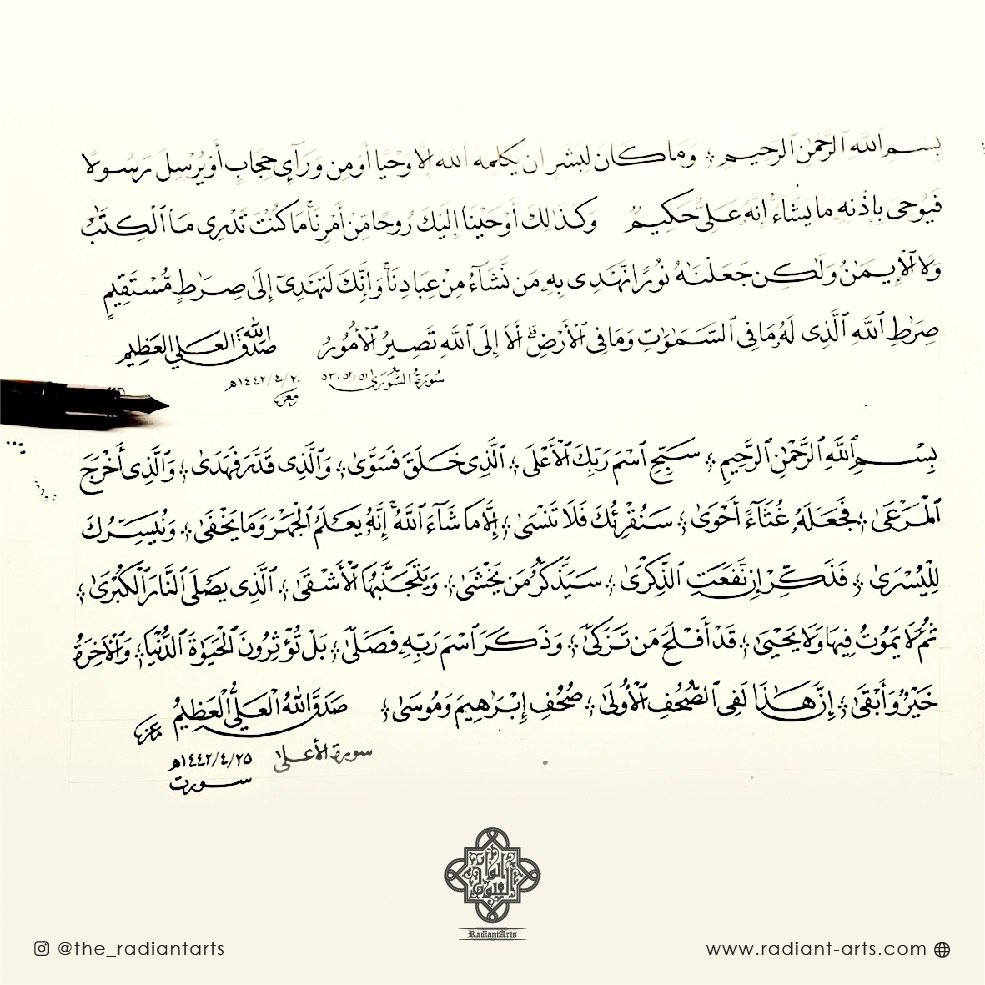 بسم الله الرحمن الرحيم ؞ وما كان لبشر ان يكلمه الله الا وحيا أو من ورآئ حجاب أو يرسل رسولا
فيوحى بإذنه ما يشاء إنه على حكيم وكذلك أوحينا إليك روحا من أمرنا ما كنت تدرى ما الكتٰب
ولا الإيمٰن ولٰكن جعلنٰه نورًا نهدى به من نشآء من عبادنا وإنك لتهدىٓ إلى صرٰطٍ مستقيمٍ
صرٰطِ اللهِ الذى له ما فى السمٰوٰت وما فى الأرض ألا إلى الله تصير الأمور صدق الله العلي العظيم
سورة الشورى ٥١، ٥٢، ٥٣ ١٤٤٢/٤/٢٠هـ
بِسْمِ اللَّهِ الرَّحْمٰنِ الرَّحِيمِ ؞ سَبِّحِ اسْمَ رَبِّكَ الْأَعْلَى ؞ الَّذِى خَلَقَ فَسَوَّىٰ ؞ وَالَّذِى قَدَّرَ فَهَدَىٰ ؞ وَالَّذِى أَخْرَجَ
الْمَرْعَىٰ ؞ فَجَعَلَهُ غُثَآءً أَحْوَىٰ ؞ سَنُقْرِئُكَ فَلَا تَنْسَىٰ ؞ إِلَّا مَا شَآءَ اللَّهُ إِنَّهُ يَعْلَمُ الْجَهْرَ وَمَا يَخْفَىٰ ؞ وَنُيَسِّرُكَ
لِلْيُسْرَىٰ ؞ فَذَكِّرْ إِنْ نَّفَعَتِ الذِّكْرَىٰ ؞ سَيَذَّكَّرُ مَن يَخْشَىٰ ؞ وَيَتَجَنَّبُهَا الْأَشْقَى ؞ الَّذِى يَصْلَى النَّارَ الْكُبْرَىٰ ؞
ثُمَّ لَا يَمُوتُ فِيهَا وَلَا يَحْيَىٰ ؞ قَدْ أَفْلَحَ مَن تَزَكَّىٰ ؞ وَذَكَرَ اسْمَ رَبِّهِ فَصَلَّىٰ ؞ بَلْ تُؤْثِرُونَ الْحَيَوٰةَ الدُّنْيَا ؞ وَالْآخِرَةُ
خَيْرٌ وَأَبْقَىٰ ؞ إِنَّ هَٰذَا لَفِى الصُّحُفِ الْأُولَىٰ ؞ صُحُفِ إِبْرَٰهِيمَ وَمُوسَىٰ ؞ صَدَقَ اللهُ الْعَلِيُّ الْعَظِيمُ
سورة الأعلى ١٤٤٢/٤/٢٥هـ
سورت
RadiantArts
@the_radiantarts
www.radiant-arts.com